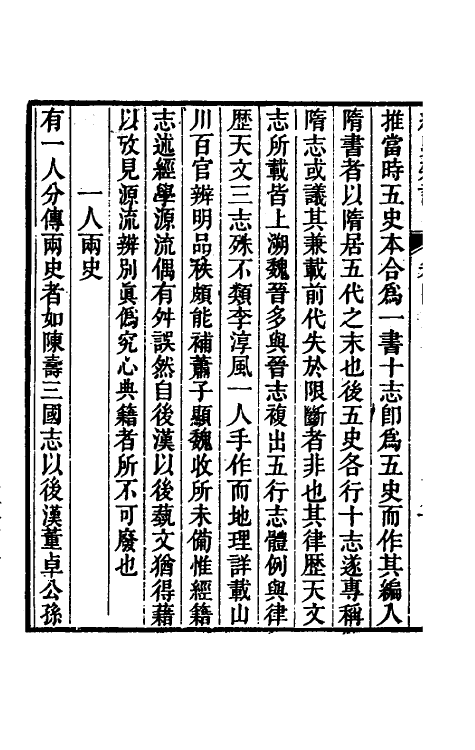 推當時五史本合爲一書十志卽爲五史而作其編入
隋書者以隋居五代之末也後五史各行十志遂專稱
隋志或議其兼載前代失於限斷者非也其律歷天文
志所載皆上溯魏晉多與晉志複出五行志體例與律
歷天文三志殊不類李淳風一人手作而地理詳載山
川百官辨明品秩頗能補蕭子顯魏收所未備惟經籍
志述經學源流偶有舛誤然自後漢以後藝文猶得藉
以攷見源流辨別眞僞究心典籍者所不可廢也
一人兩史
有一人分傳兩史者如陳壽三國志以後漢董卓公孫